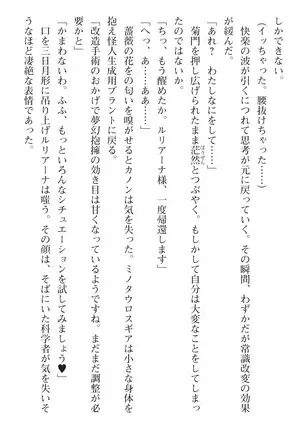 しかできない。
(イッちゃった。腰抜けちゃった……)
快楽の波が引くにつれて思考が元に戻っていく。その瞬間、わずかだが常識改変の効果
が緩んだ。
「あれ？　わたしなにをして……」
菊門を押し広げられたまま茫然とつぶやく。もしかして自分は大変なことをしてしまっ
たのではないか。
「ちっ、もう醒めたか。ルリアーナ様、一度帰還します」
「へっ、あ……ああ……」
薔薇の花をの匂いを嗅がせるとカノンは気を失った。ミノタウロスギアは小さな身体を
抱え怪人生成用プラントに戻る。
「改造手術のおかげで夢幻抱擁の効き目は甘くなっているようですね。まだまだ調整が必
要かと」
「かまわないわ。ふふ、もっといろんなシチュエーションを試してみましょう♥」
口を三日月形に吊り上げルリアーナは嗤う。その顔は、そばにいた科学者が気を失いそ
うなほど凄絶な表情であった。